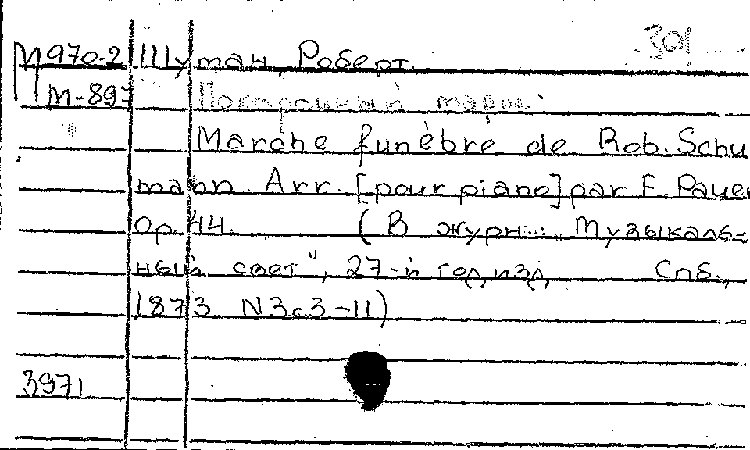 301
М970-2 Шуман, Роберт.
М-897 Похоронный марш.
Marche funèbre de Rob. Schu-
mann. Arr. [pour piano] par E. Pauer
Op. 44. (В журн.: Музыкаль-
ный свет", 27-й год изд. Спб.,
1873 N3 с 3-11)
3971